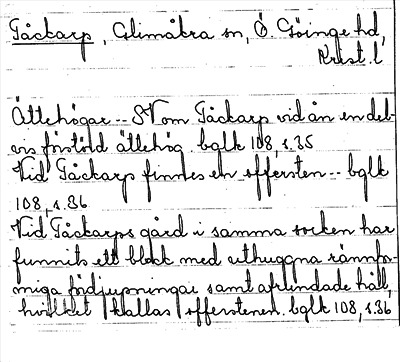 Tåckarp, Glimåkra sn, Ö. Göinge hd,
Krist. l
Ättehögar -- SV om Tåckarp vid ån en del-
vis förstörd ättehög. bglk 108, s. 35
Vid Tåckarp finnes en offersten -- bglk
108, s. 36
Vid Tåckarps gård i samma socken har
funnits ett block med uthuggna rännfor-
miga fördjupningar samt afrundade håll,
hvilket kallas offerstenen. bglk 108, s. 36